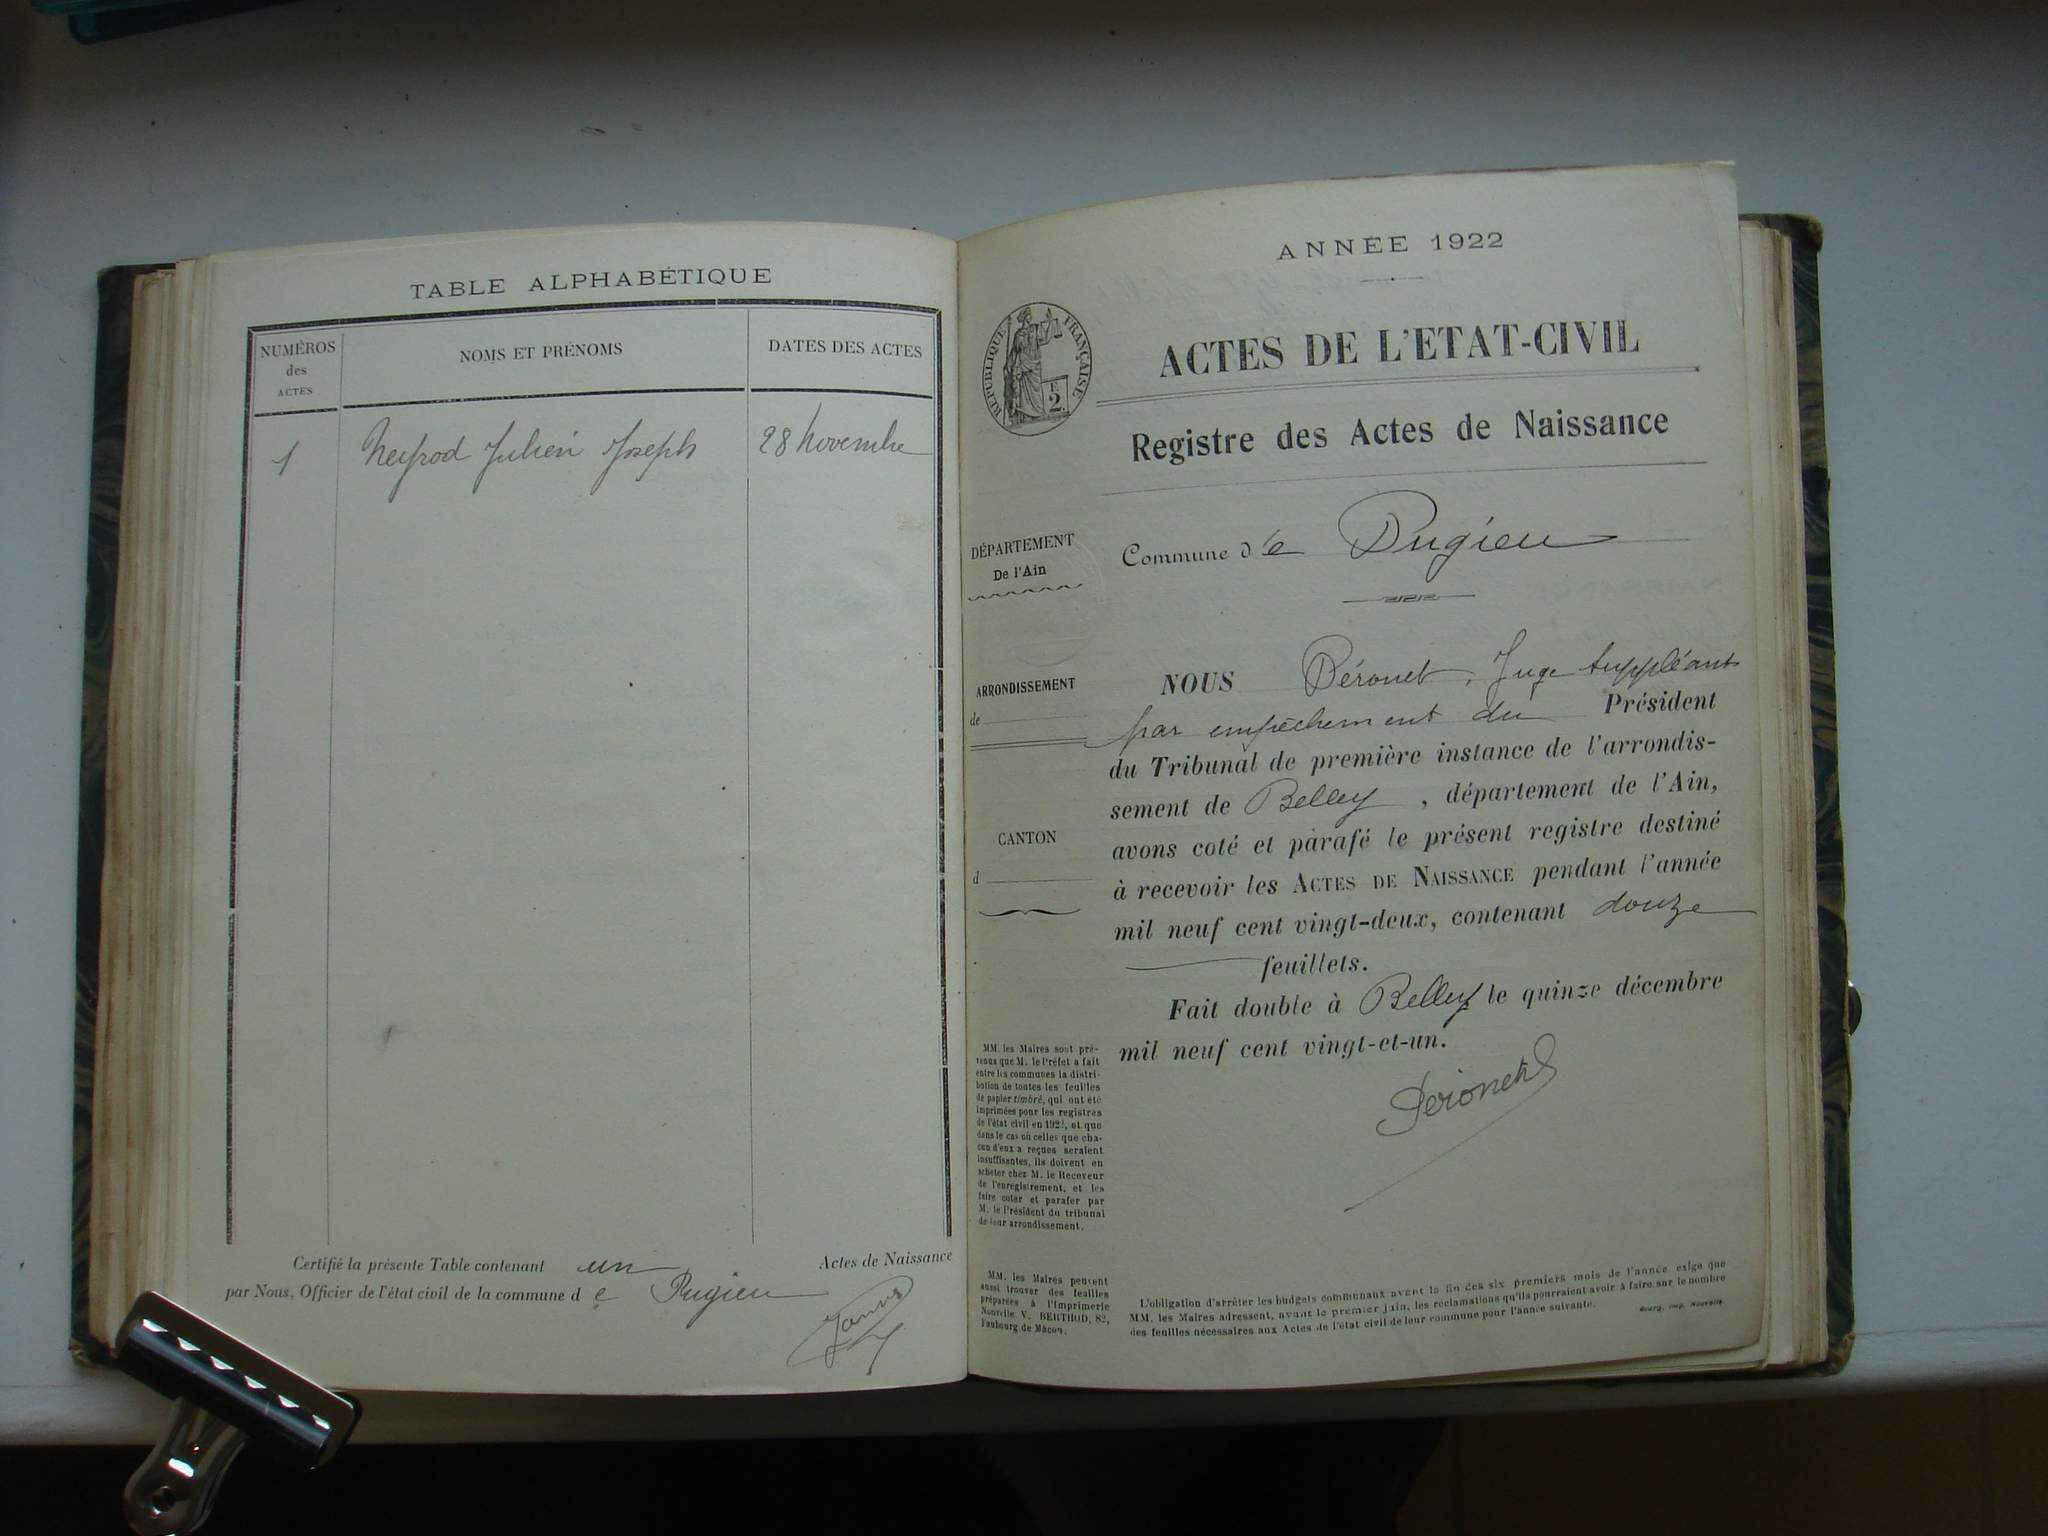 TABLE ALPHABÉTIQUE
NUMÉROS
des
ACTES
NOMS ET PRÉNOMS
DATES DES ACTES
1 Neyrod Julien Joseph 28 Novembre
Certifié la présente Table contenant un Actes de Naissance
par Nous, Officier de l'état civil de la commune de Pugieu
ANNÉE 1922
RÉPUBLIQUE FRANÇAISE
2
ACTES DE L'ETAT-CIVIL
Registre des Actes de Naissance
DÉPARTEMENT
De l'Ain
Commune de Pugieu
ARRONDISSEMENT
de
CANTON
d
NOUS Péronet, Juge suppléant
par empêchement du Président
du Tribunal de première instance de l'arrondis-
sement de Belley, département de l'Ain,
avons coté et parafé le présent registre destiné
à recevoir les ACTES DE NAISSANCE pendant l'année
mil neuf cent vingt-deux, contenant douze
feuillets.
Fait double à Belley le quinze décembre
mil neuf cent vingt-et-un.
Péronet
MM. les Maires sont pré-
venus que M. le Préfet a fait
entre les communes la distri-
bution de toutes les feuilles
de papier timbré, qui ont été
imprimées pour les registres
de l'état civil en 1922, et que
dans le cas où celles que cha-
cun d'eux a reçues seraient
insuffisantes, ils doivent en
acheter chez M. le Receveur
de l'enregistrement, et les
faire coter et parafer par
M. le Président du tribunal
de leur arrondissement.
MM. les Maires peuvent
aussi trouver des feuilles
préparées à l'Imprimerie
Nouvelle V. BERTHOD, 82,
Faubourg de Mâcon.
L'obligation d'arrêter les budgets communaux avant la fin des six premiers mois de l'année exige que
MM. les Maires adressent, avant le premier juin, les réclamations qu'ils pourraient avoir à faire sur le nombre
des feuilles nécessaires aux Actes de l'état civil de leur commune pour l'année suivante.
Bourg, Imp. Nouvelle